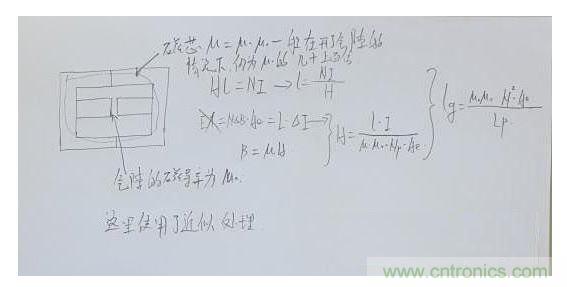 磁芯 μ=μ·μ₀ 一般在开了气隙的
情况下,仍为μ₀的几十上百倍
Hl = NI → l = NI/H
= N·ΔB·Ae = L·ΔI →
B = μH
H = L·I/(μ·μ₀·Np·Ae)
lg = μ₀μ₀ N²·Ae/Lp
气隙的磁导率为μ₀
这里使用了近似处理.
www.cntronics.com